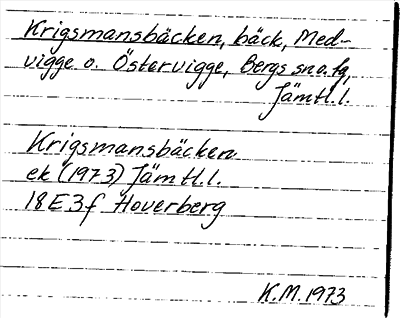 Krigsmansbäcken, bäck, Med-
vigge o. Östervigge, Bergs sn o. tg,
Jämtl. l.
Krigsmansbäcken
ek (1973) Jämtl. l.
18E3f Hoverberg
K.M. 1973